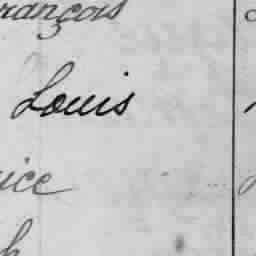 rançois
Louis
ice